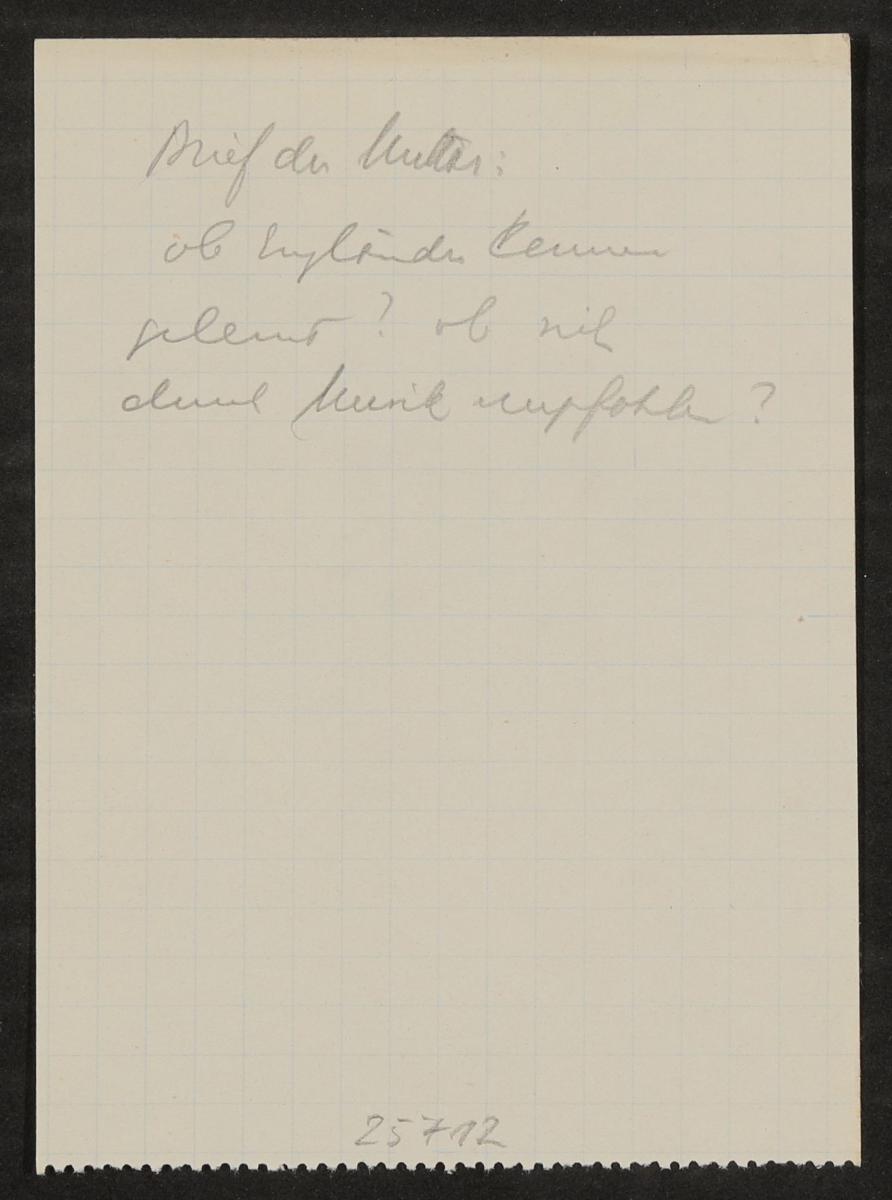 Brief der Mutter:
ob Engländer kennen
gelernt? ob sich
durch Musik empfohlen?
25712